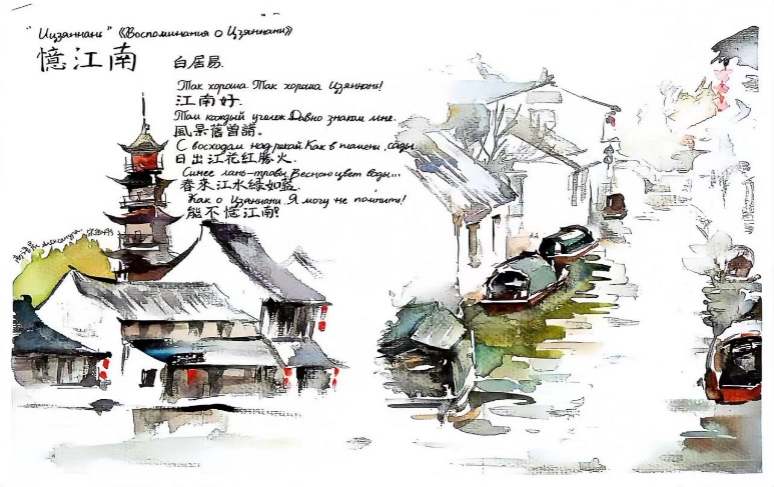 "Цзяннань" 《Воспоминания о Цзяннани》
憶江南 白居易.
Так хороша. Так хороша Цзяннань!
江南好.
Там каждый уголок Давно знаком мне.
風景舊曾諳。
С восходом над рекой Как в пламени, сады.
日出江花紅勝火.
Синее лань-травы Весною цвет воды...
春來江水綠如藍.
Как о Цзяннани Я могу не помнить!
能不憶江南?
Александра